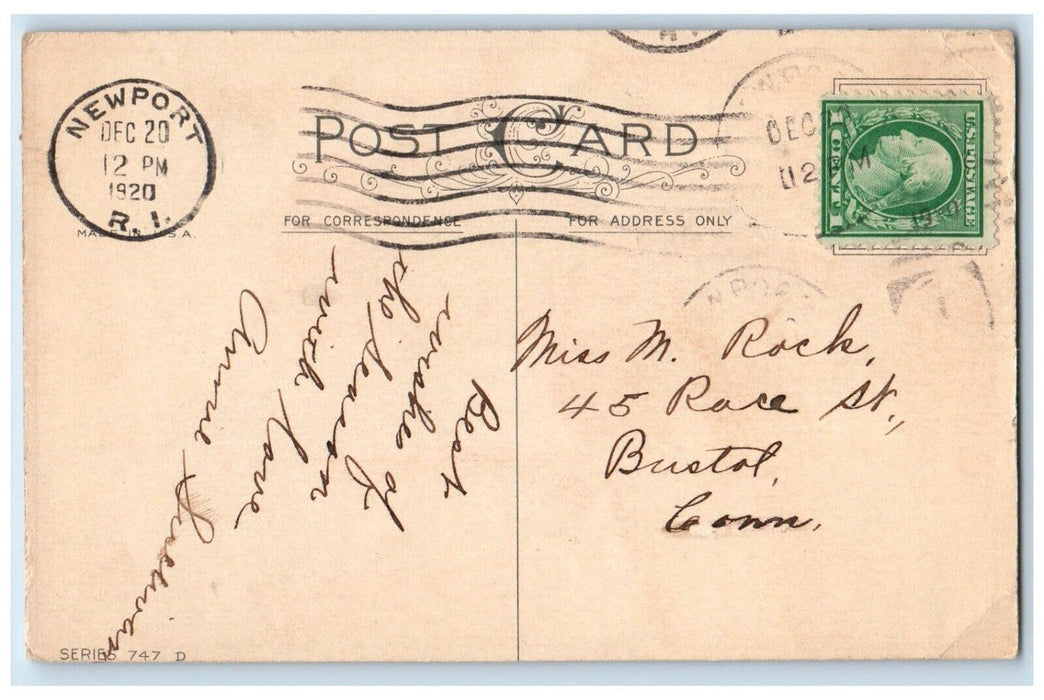 NEWPORT
DEC 20
12 PM
1920
R.I.
MADE IN U.S.A.
POST CARD
FOR CORRESPONDENCE
FOR ADDRESS ONLY
U.S. POSTAGE
1 CENT 1
DEC
12 M
Best
wishes of
the season
with love
Annie Sullivan
Miss M. Rock,
45 Race St.,
Bristol,
Conn.
SERIES 747 D